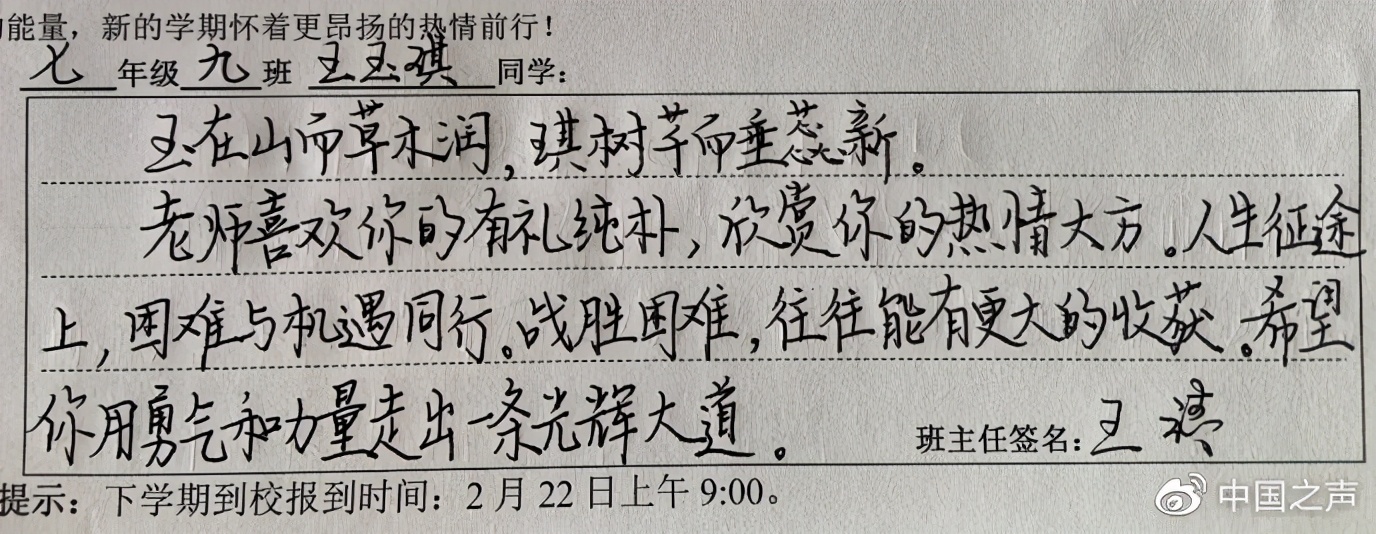 能量，新的学期怀着更昂扬的热情前行！
七 年级 九 班 王玉琪 同学：
玉在山而草木润，琪树芊而垂蕊新。
老师喜欢你的有礼纯朴，欣赏你的热情大方。人生征途
上，困难与机遇同行。战胜困难，往往能有更大的收获。希望
你用勇气和力量走出一条光辉大道。
班主任签名：王
提示：下学期到校报到时间：2月22日上午9:00。
中国之声